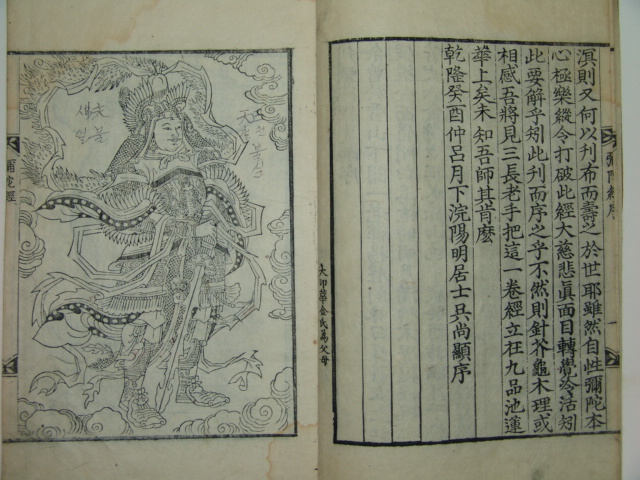 溟則又何以刊布而壽之於世耶雖然自性彌陀本
心極樂縱令打破此經大慈悲眞面目轉覺泠活矧
此要解乎矧此刊而序之乎不然則針芥龜木理或
相感吾將見三長老手把這一卷經立在九品池蓮
華上矣未知吾師其肯麽
乾隆癸酉仲呂月下浣陽明居士尚顯序
彌陀經序 一
大印華金氏爲父母
彌陀經